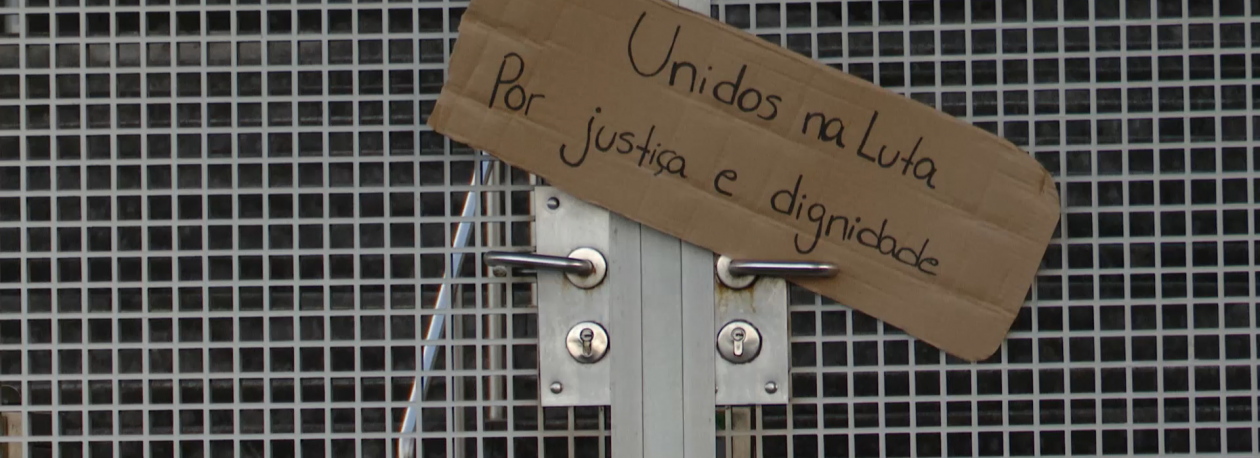 Unidos na Luta
Por justiça e dignidade